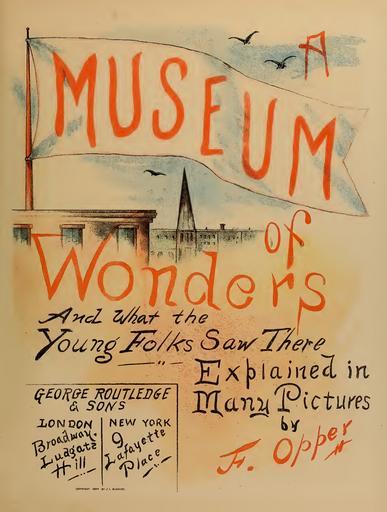 A
MUSEUM
of
Wonders
And What the
Young Folks Saw There
Explained in
Many Pictures
by
F. Opper
GEORGE ROUTLEDGE
& SONS
LONDON
Broadway.
Ludgate
Hill
NEW YORK
9
Lafayette
Place